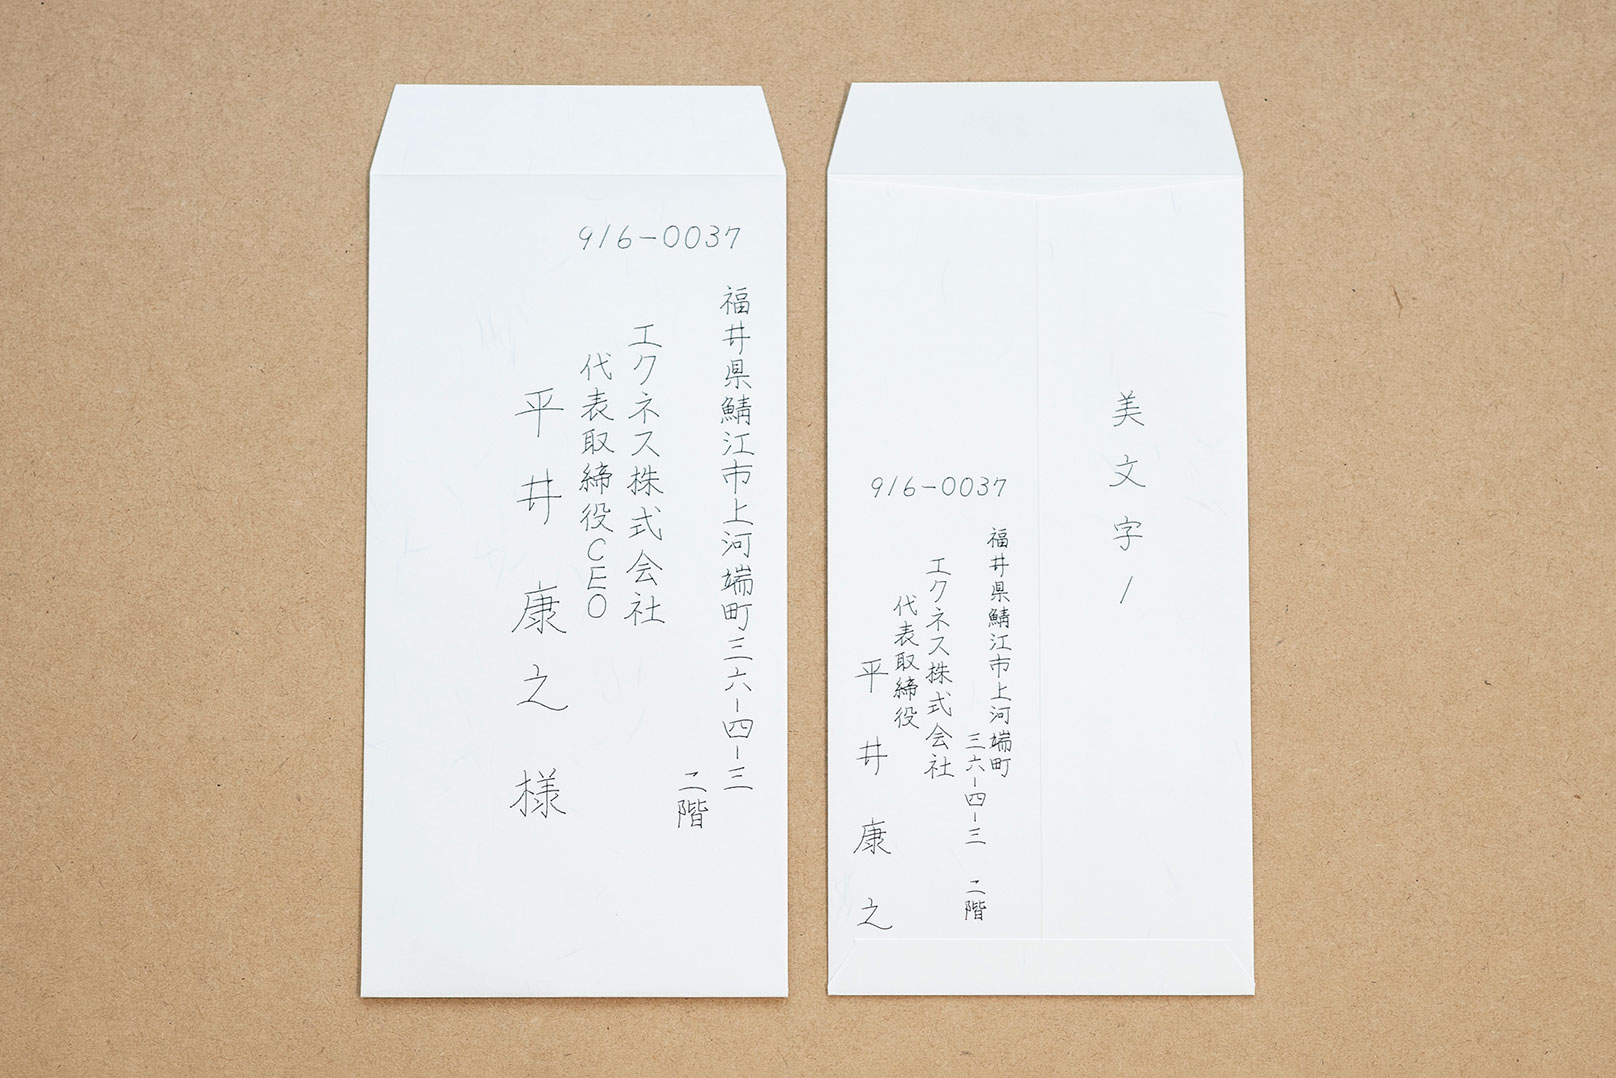 916-0037
福井県鯖江市上河端町三六-四-三
二階
エクネス株式会社
代表取締役CEO
平井康之様
美文字1
916-0037
福井県鯖江市上河端町
三六-四-三 二階
エクネス株式会社
代表取締役
平井康之